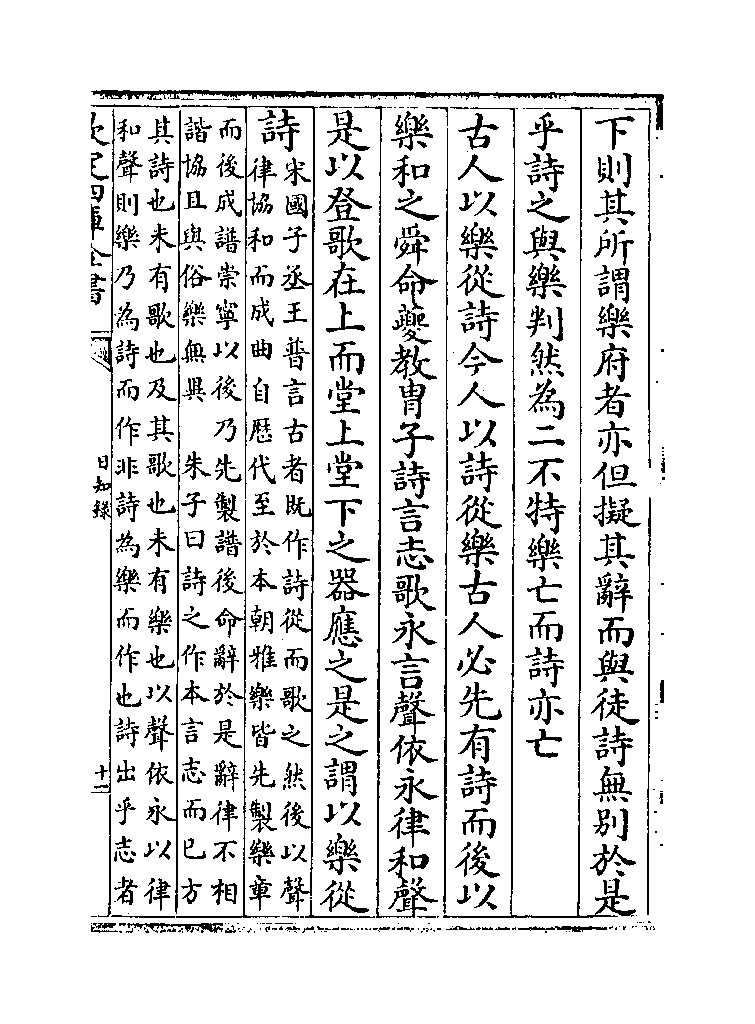 下則其所謂樂府者亦但擬其辭而與徒詩無别於是
乎詩之與樂判然為二不特樂亡而詩亦亡
古人以樂從詩今人以詩從樂古人必先有詩而後以
樂和之舜命夔教胄子詩言志歌永言聲依永律和聲
是以登歌在上而堂上堂下之器應之是之謂以樂從
詩
宋國子丞王普言古者既作詩從而歌之然後以聲
律協和而成曲自歴代至於本朝雅樂皆先製樂章
而後成譜崇寧以後乃先製譜後命辭於是辭律不相
諧協且與俗樂無異　朱子曰詩之作本言志而已方
其詩也未有歌也及其歌也未有樂也以聲依永以律
和聲則樂乃為詩而作非詩為樂而作也詩出乎志者
欽定四庫全書
日知錄
十一